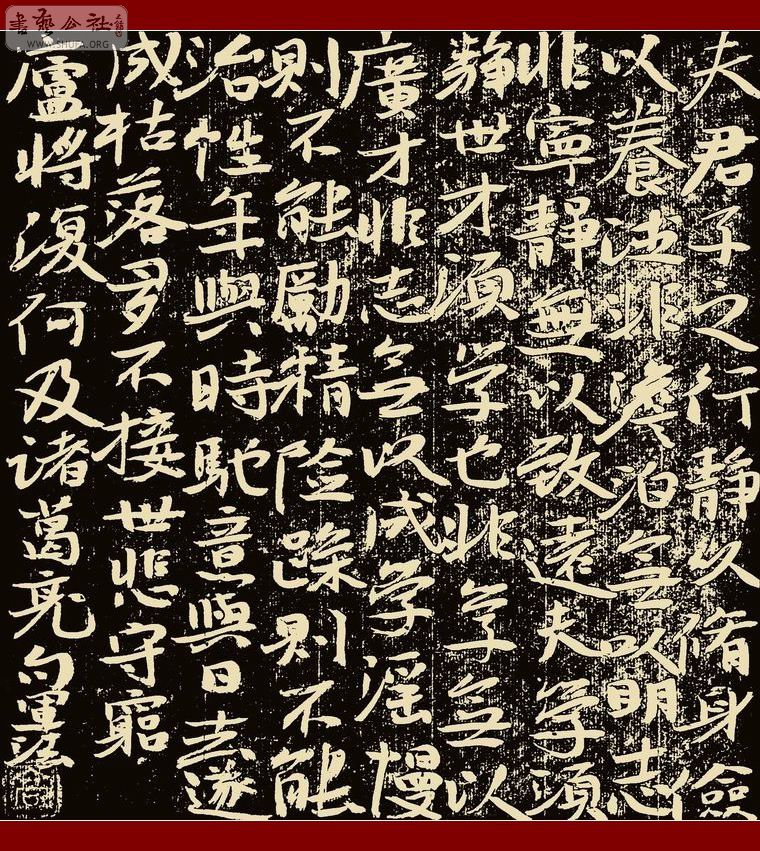 書藝公社
WWW.SHUFA.ORG
夫君子之行靜以脩身儉
以養德非澹泊无以明志
非寧靜無以致遠夫学須
静世才須学也非学无以
廣才非志无以成学滛慢
則不能勵精险躁则不能
治性年與時馳意與日去遂
成枯落多不接世悲守窮
廬將復何及诸葛亮